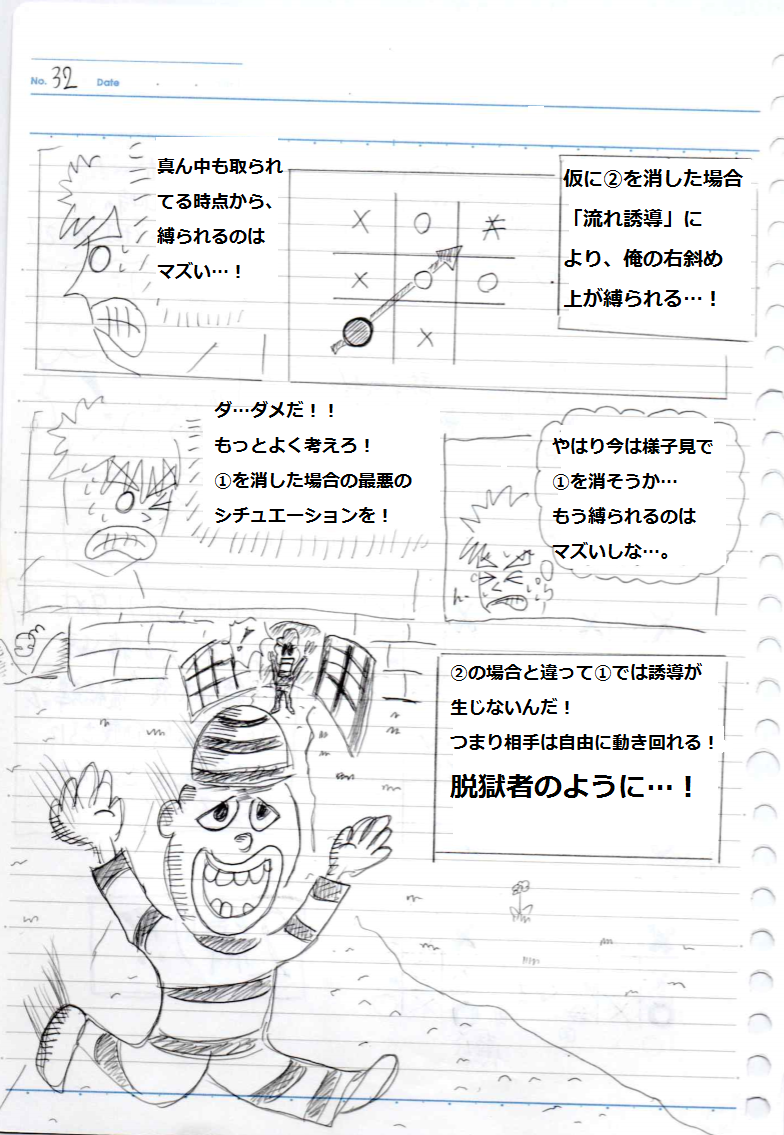 No. 32 Date
仮に②を消した場合
「流れ誘導」に
より、俺の右斜め
上が縛られる…！
× ○ ×
× ○ ○
×
真ん中も取られ
てる時点から、
縛られるのは
マズい…！
やはり今は様子見で
①を消そうか…
もう縛られるのは
マズいしな…。
ダ…ダメだ！！
もっとよく考えろ！
①を消した場合の最悪の
シチュエーションを！
②の場合と違って①では誘導が
生じないんだ！
つまり相手は自由に動き回れる！
脱獄者のように…！